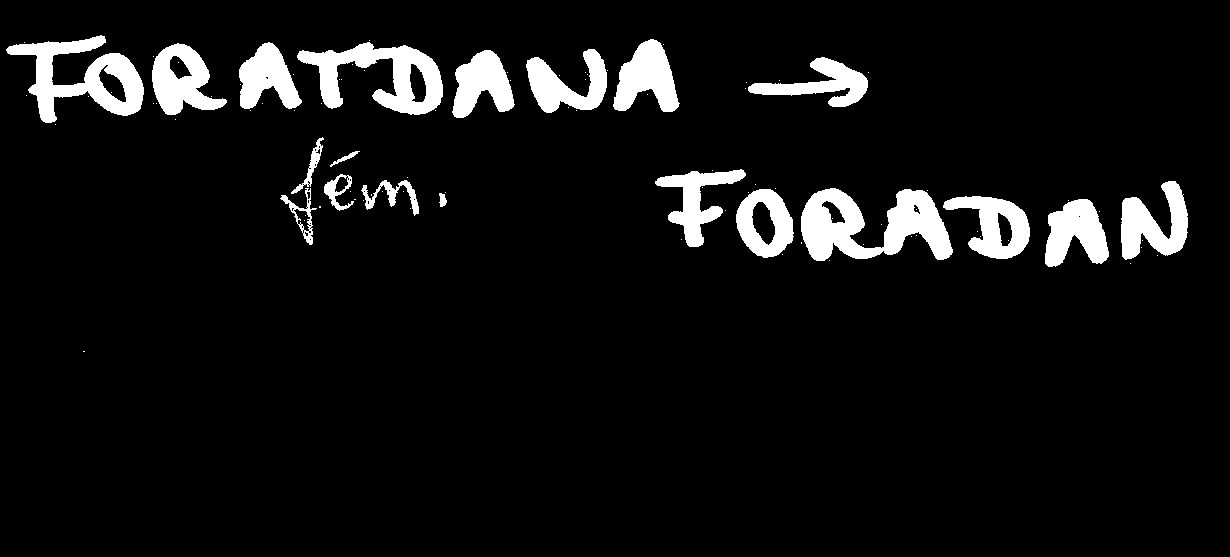 FORATDANA →
fém.
FORADAN